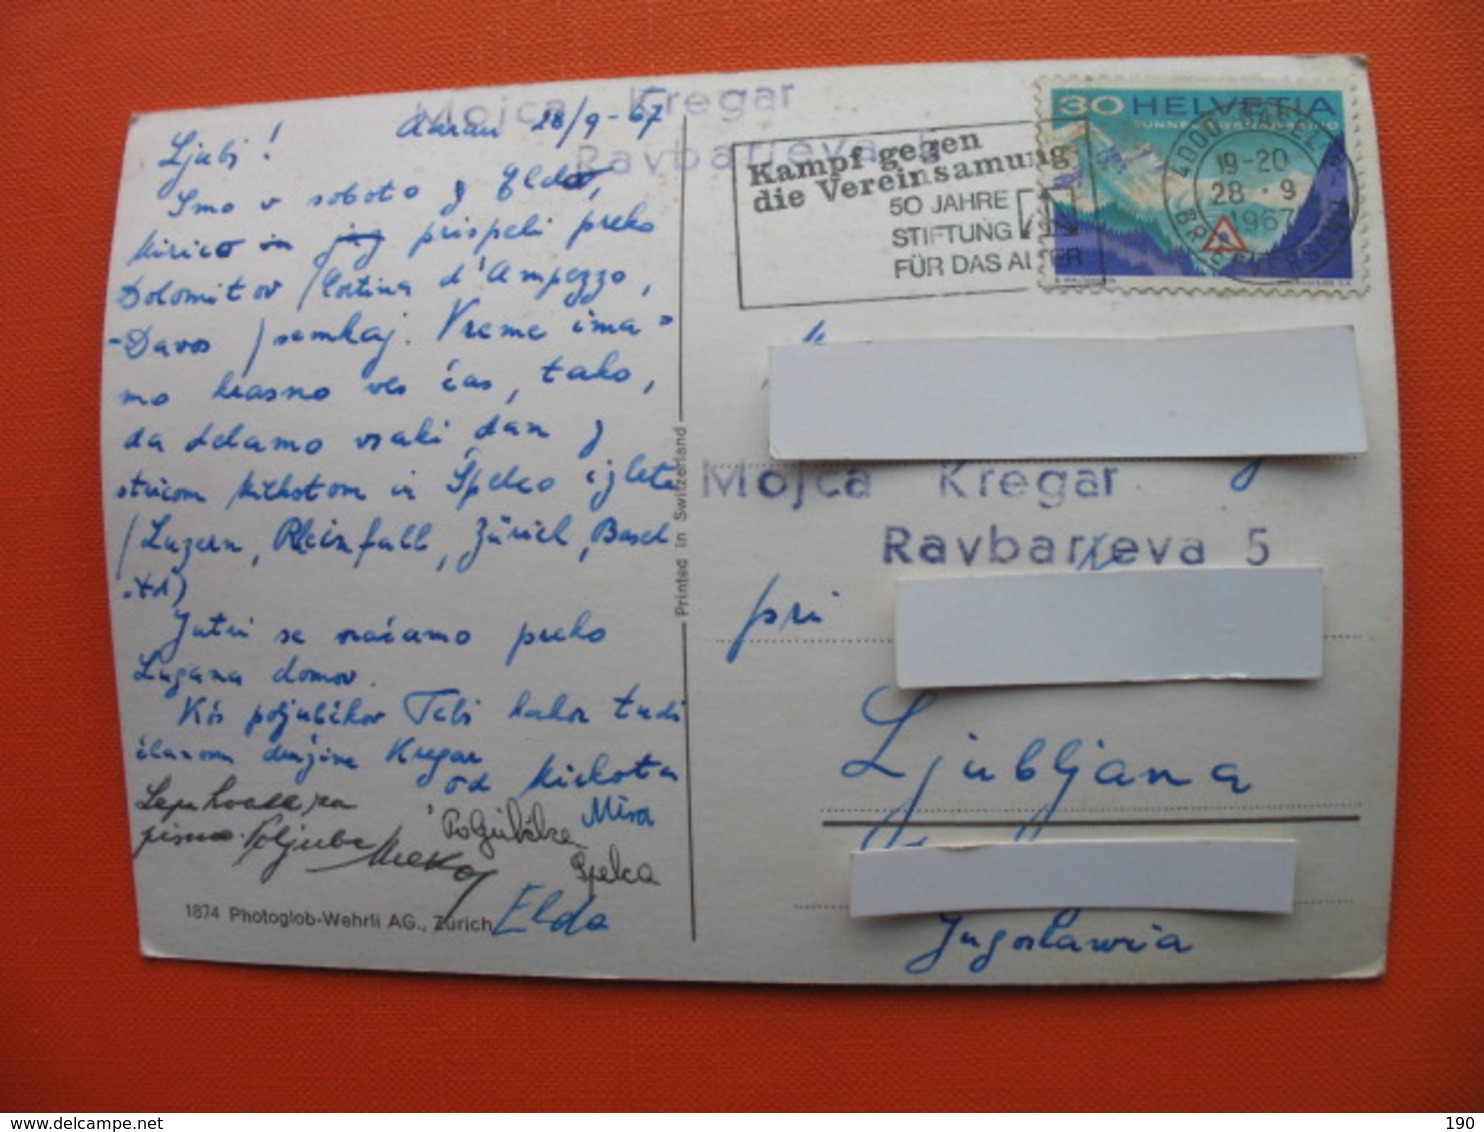 Mojca Kregar
Ravbarjeva 5
Aarau 28/9-67
Ljubi!
Smo v soboto z Eldo,
Mirico in prispeli preko
Dolomitov /Cortina d'Ampezzo,
-Davos/ semkaj. Vreme ima-
mo krasno ves čas, tako,
da delamo vsaki dan z
stricom Mirkotom in Špelco izlete
/Luzern, Rheinfall, Zürich, Basel
itd)
Jutri se vračamo preko
Lugana domov.
Kóš poljubčkov Tebi kakor tudi
članom družine Kregar
od Mirkota
Lepa hvala za
pismo. Poljube Mirko
Poljubčke
Mira
Špelca
Elda
1874 Photoglob-Wehrli AG., Zürich
Printed in Switzerland
Kampf gegen
die Vereinsamung
50 JAHRE
STIFTUNG
FÜR DAS ALTER
30 HELVETIA
4000 BASEL 2
19-20
28.9
1967
BRIEFVERSAND
Mojca Kregar
Ravbarjeva 5
pri
Ljubljana
Jugoslawia
190